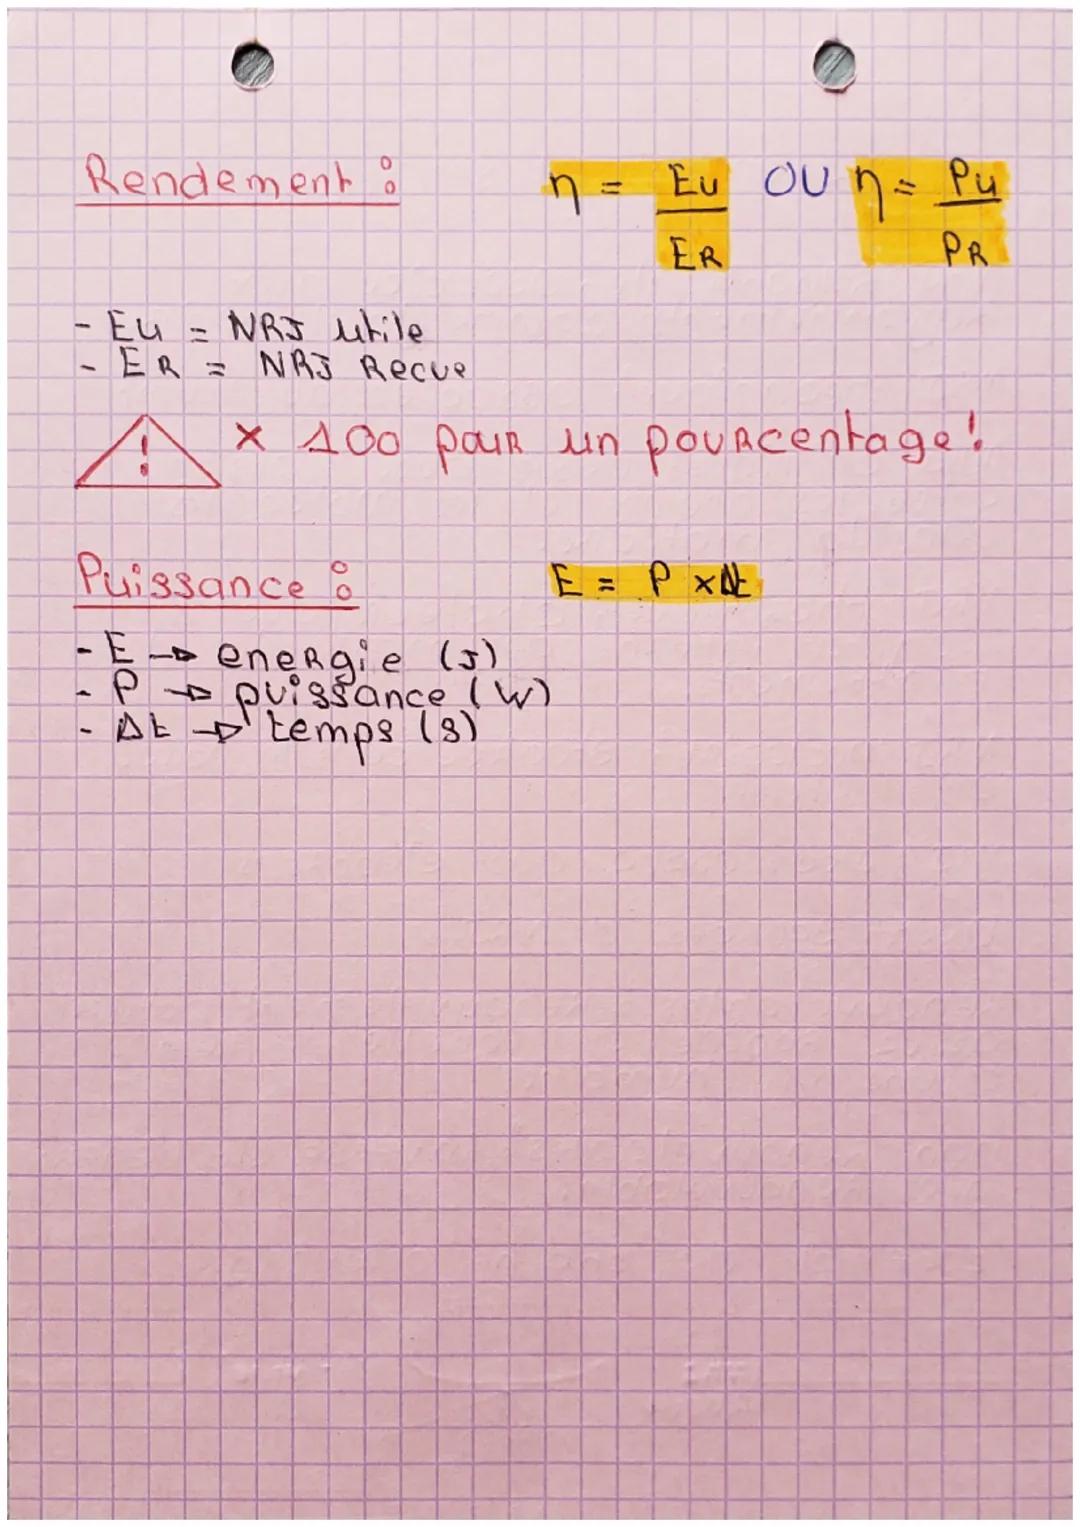 Rendement : η = Eu/ER OU η = Pu/PR
- Eu = NRJ utile
- ER = NRJ Recue
! × 100 pour un pourcentage !
Puissance : E = P × Δt
- E → energie (J)
- P → puissance (W)
- Δt → temps (s)